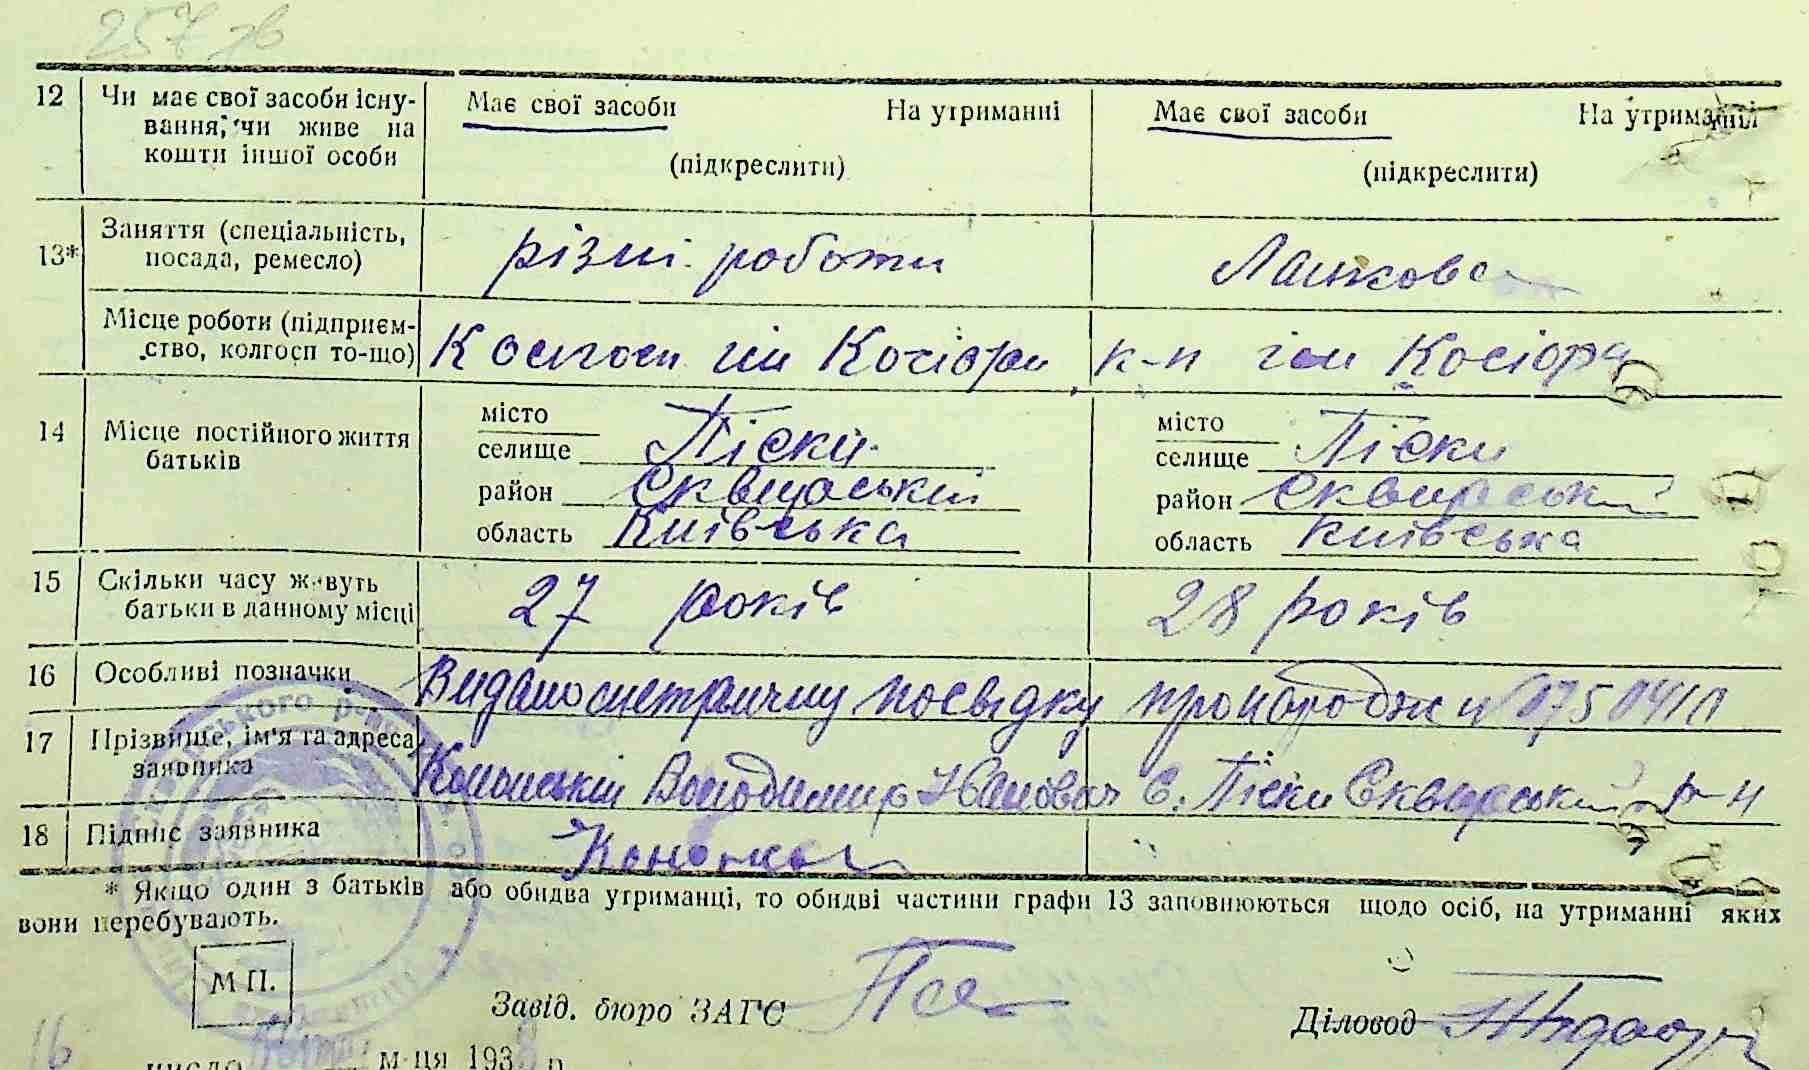 257 зв
12 Чи має свої засоби існу- Має свої засоби На утриманні Має свої засоби На утриманні
вання, чи живе на
кошти іншої особи (підкреслити) (підкреслити)
13* Заняття (спеціальність, різні роботи Ланкова
посада, ремесло)
Місце роботи (підприєм- Колгосп ім Косіора к-п ім Косіора
ство, колгосп то-що)
14 Місце постійного життя місто місто
батьків селище Піски селище Піски
район Сквирський район Сквирський
область Київська область Київська
15 Скільки часу живуть 27 років 28 років
батьки в данному місці
16 Особливі позначки Видано метричну посвідку про народж
17 Прізвище, ім'я та адреса
заявника Володимир Іванович С. Піски Сквирський р-н
18 Підпис заявника
* Якщо один з батьків або обидва утриманці, то обидві частини графи 13 заповнюються щодо осіб, на утриманні яких
вони перебувають.
М П.
Завід. бюро ЗАГС Діловод
16 число м-ця 1938 р